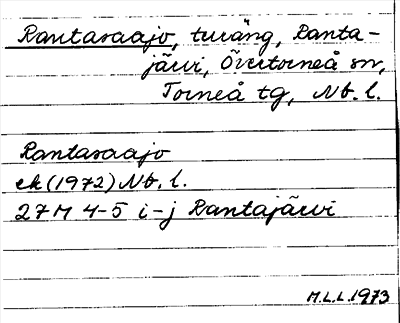 Rantasaajo, turäng, Ranta-
järvi, Övertorneå sn,
Torneå tg, Nb. l.
Rantasaajo
ek (1972) Nb. l.
27M 4-5 i-j Rantajärvi
M.L.L. 1973